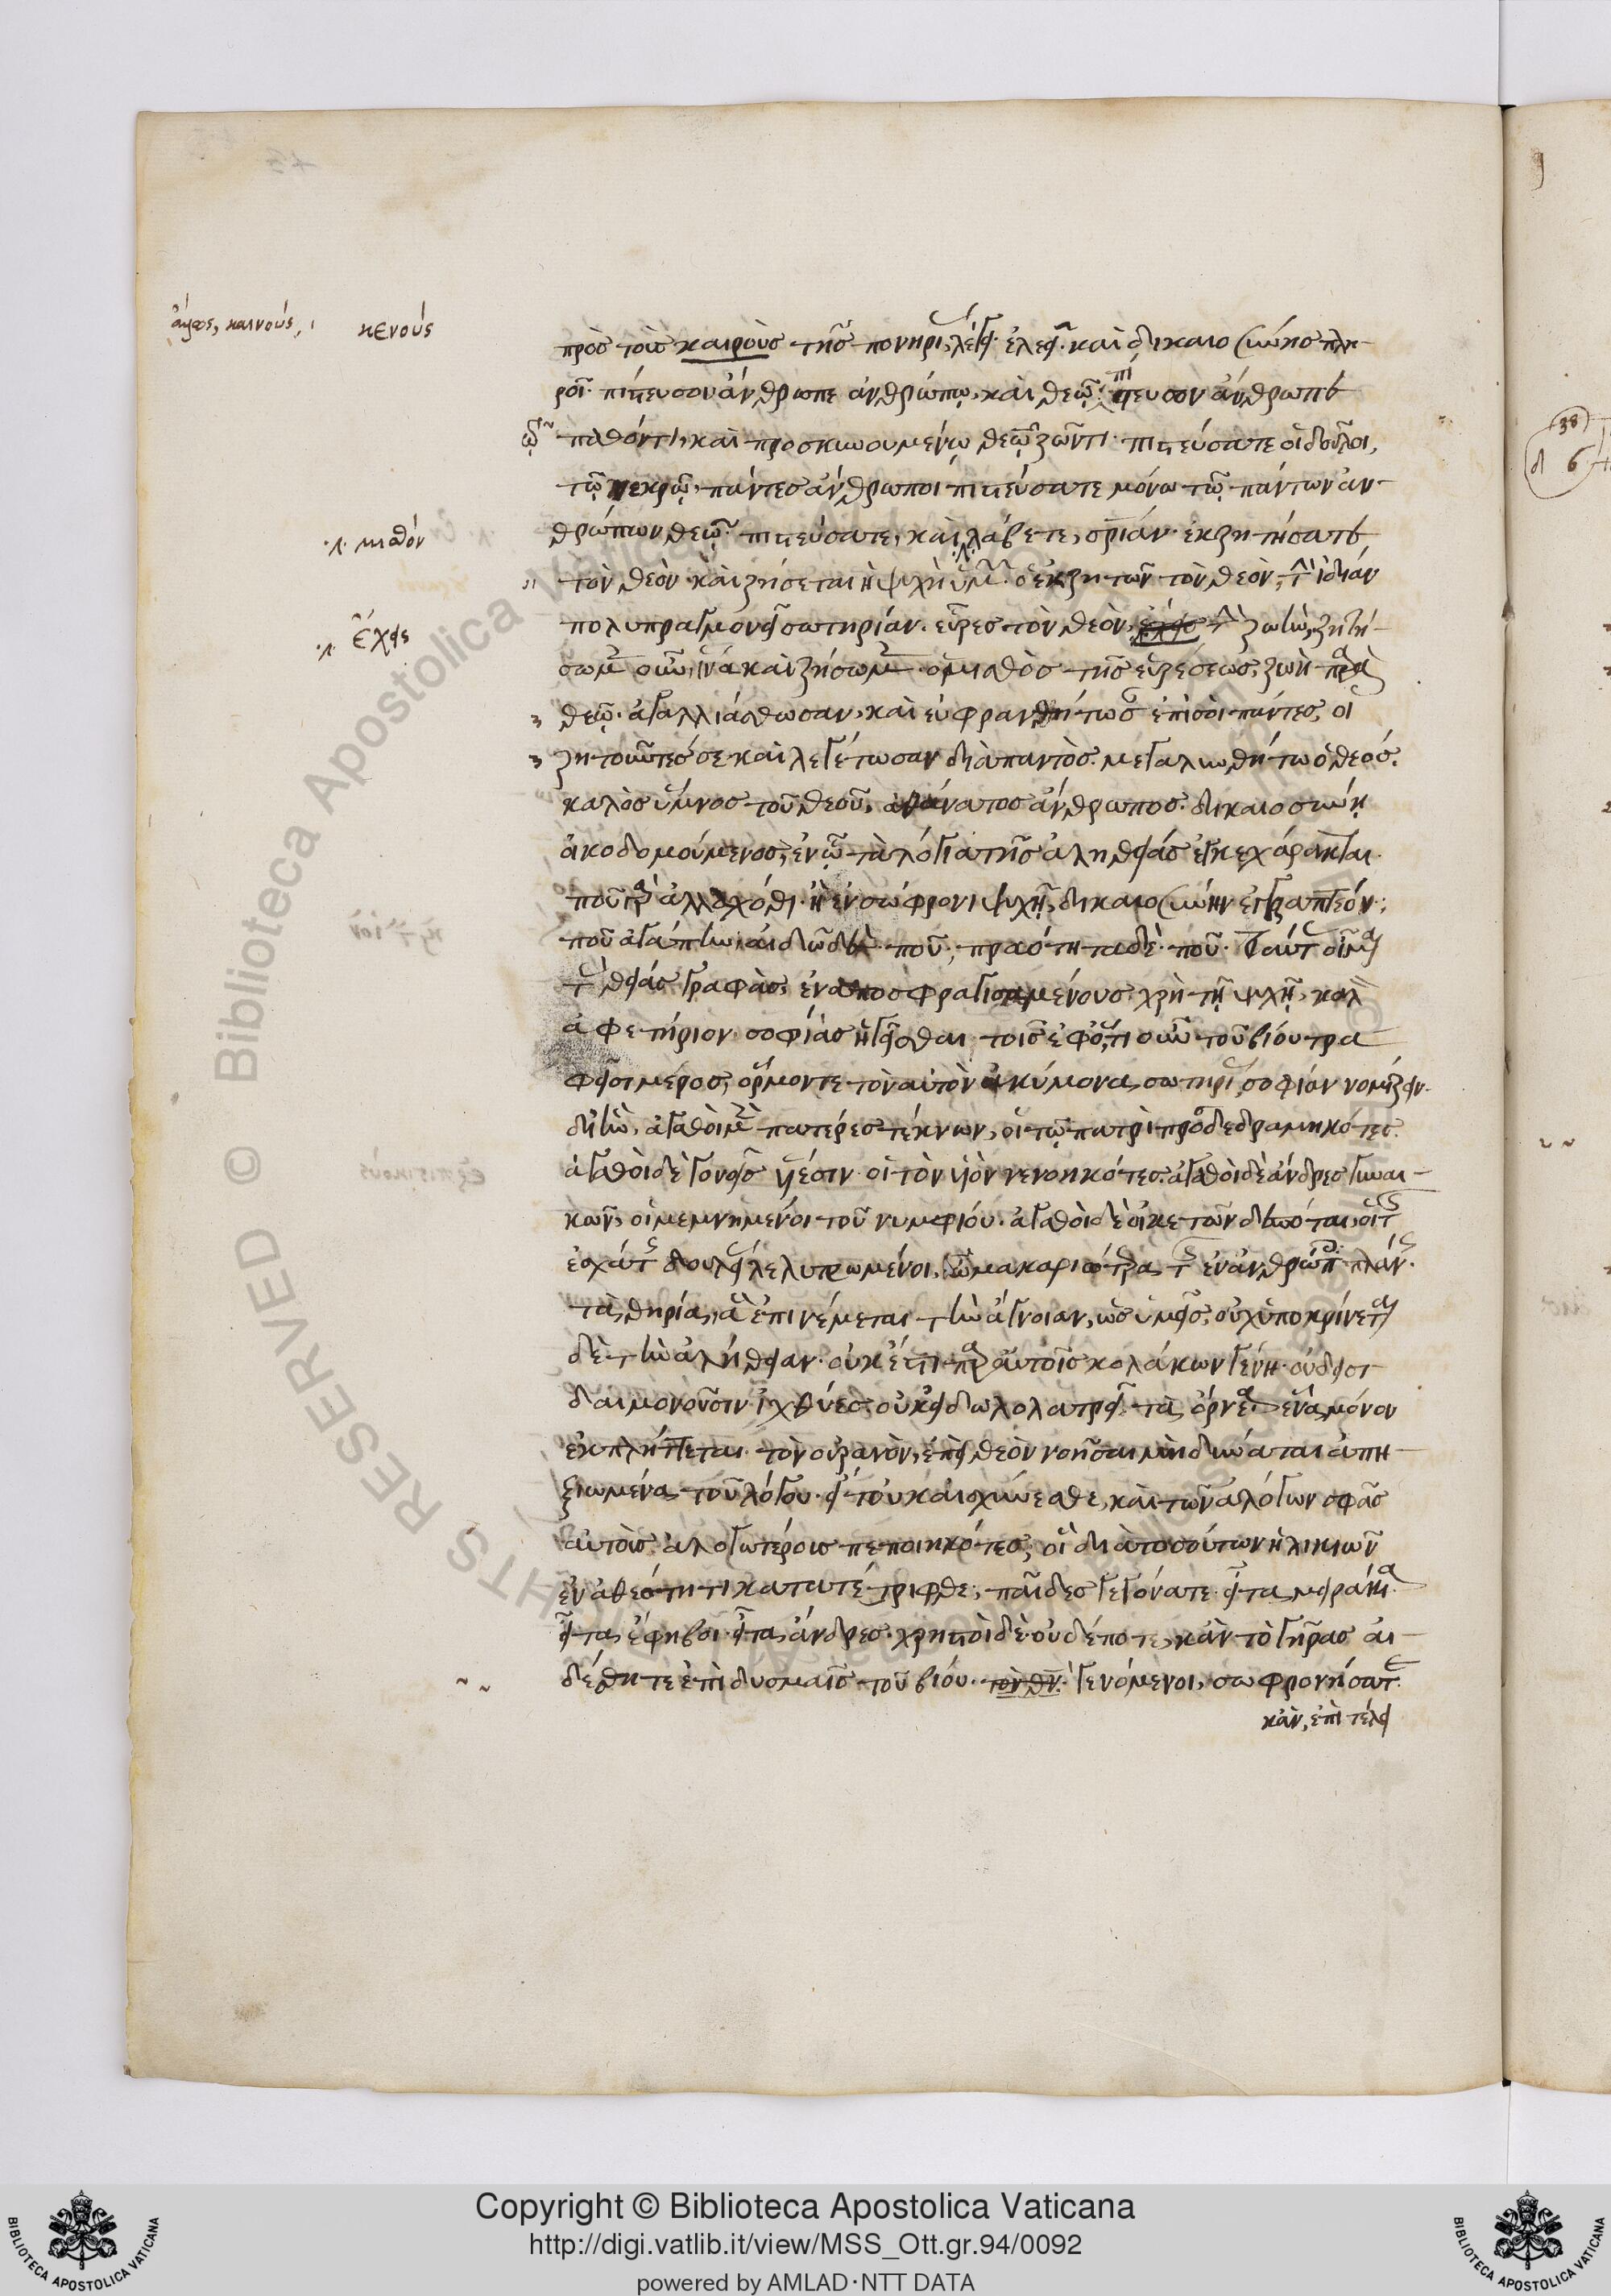 ἄμφω, καινούς, κενούς
πρὸς τοὺς καιροὺς τῆς πονηρίας λέγει ἐλέει καὶ δικαιοσύνης πλη-
ροῖ. πίστευσον ἄνθρωπε ἀνθρώπῳ, καὶ θεῷ· πίστευσον ἄνθρωπε
ᾧ παθόντι, καὶ προσκυνουμένῳ θεῷ ζῶντι. πιστεύσατε οἱ δοῦλοι,
τῷ νεκρῷ. πάντες ἄνθρωποι πιστεύσατε μόνῳ τῷ πάντων ἀν-
θρώπων θεῷ. πιστεύσατε, καὶ λάβετε, σρίαν. ἐκζητήσατε
·λ· μισθόν
τὸν θεὸν καὶ ζήσεται ἡ ψυχὴ ὑμῶν. ὁ ἐκζητῶν τὸν θεὸν, τὴν ἰδίαν
πολυπραγμονεῖ σωτηρίαν. εὗρες τὸν θεὸν, ἔχεις τὴν ζωὴν, ζητή-
·λ· ἔχεις
σωμεν οὖν, ἵνα καὶ ζήσωμεν. ὁ μισθὸς τῆς εὑρέσεως, ζωὴ παρὰ
θεῷ. ἀγαλλιάσθωσαν, καὶ εὐφρανθήτωσαν ἐπὶ σοὶ πάντες, οἱ
ζητοῦντές σε καὶ λεγέτωσαν διαπαντὸς. μεγαλυνθήτω ὁ θεός.
καλὸς ὕμνος τοῦ θεοῦ, ἀθάνατος ἄνθρωπος. δικαιοσύνῃ
οἰκοδομούμενος, ἐν ᾧ τὰ λόγια τῆς ἀληθείας ἐγκεχάρακται.
ποῦ γὰρ ἀλλαχόθι. ἢ ἐν σώφρονι ψυχῇ, δικαιοσύνην ἐγγραπτέον;
ποῦ ἀγάπην; αἰδῶ δὲ ποῦ; πραότητα δὲ ποῦ. ταύτας οἶμαι
τὰς θείας γραφὰς, ἐναποσφραγισαμένους χρὴ τῇ ψυχῇ, καλὸν
ἀφετήριον σοφίας ἡγεῖσθαι τοῖς ἐφ' ὅ,τι οὖν τοῦ βίου τρα
πεῖσι μέρος, ὅρμον τε τὸν αὐτὸν ἀκύμονα σωτηρίας σοφίαν νομίζειν.
δι' ἣν, ἀγαθοὶ μὲν πατέρες τέκνων, οἱ τῷ πατρὶ προσδεδραμηκότες.
ἀγαθοὶ δὲ γονεῦσιν υἱέσιν οἱ τὸν υἱὸν νενοηκότες. ἀγαθοὶ δὲ ἄνδρες γυναι-
κῶν, οἱ μεμνημένοι τοῦ νυμφίου. ἀγαθοὶ δὲ οἰκετῶν δεσπόται, οἱ τῆς
ἐσχάτης δουλείας λελυτρωμένοι. ὢ μακαριώτερα τῆς ἐν ἀνθρώποις πλάνης
τὰ θηρία, ἃ ἐπινέμεται τὴν ἄγνοιαν, ὡς ὑμεῖς, οὐχ ὑποκρίνεται
δὲ τὴν ἀλήθειαν. οὐκ ἔστι παρ' αὐτοῖς κολάκων γένη. οὐ δεισι
δαιμονοῦσιν ἰχθύες. οὐκ εἰδωλολατρεῖ τὰ ὄρνεα. ἕνα μόνον
ἐκπλήττεται τὸν οὐρανὸν, ἐπεὶ θεὸν νοῆσαι μὴ δύναται ἀπη-
ξιωμένα τοῦ λόγου. εἶτ' οὐκ αἰσχύνεσθε, καὶ τῶν ἀλόγων σφᾶς
αὐτοὺς ἀλογωτέρους πεποιηκότες; οἳ διὰ τοσούτων ἡλικιῶν
ἐν ἀθεότητι κατατέτριφθε; παῖδες γεγόνατε. εἶτα μειράκια.
εἶτα ἔφηβοι. εἶτα ἄνδρες. χρηστοὶ δὲ οὐδέποτε, κἂν τὸ γῆρας αἰ-
δέσθητε ἐπὶ δυσμαῖς τοῦ βίου. τὸν θν. γενόμενοι, σωφρονήσατε.
κἂν, ἐπὶ τέλει